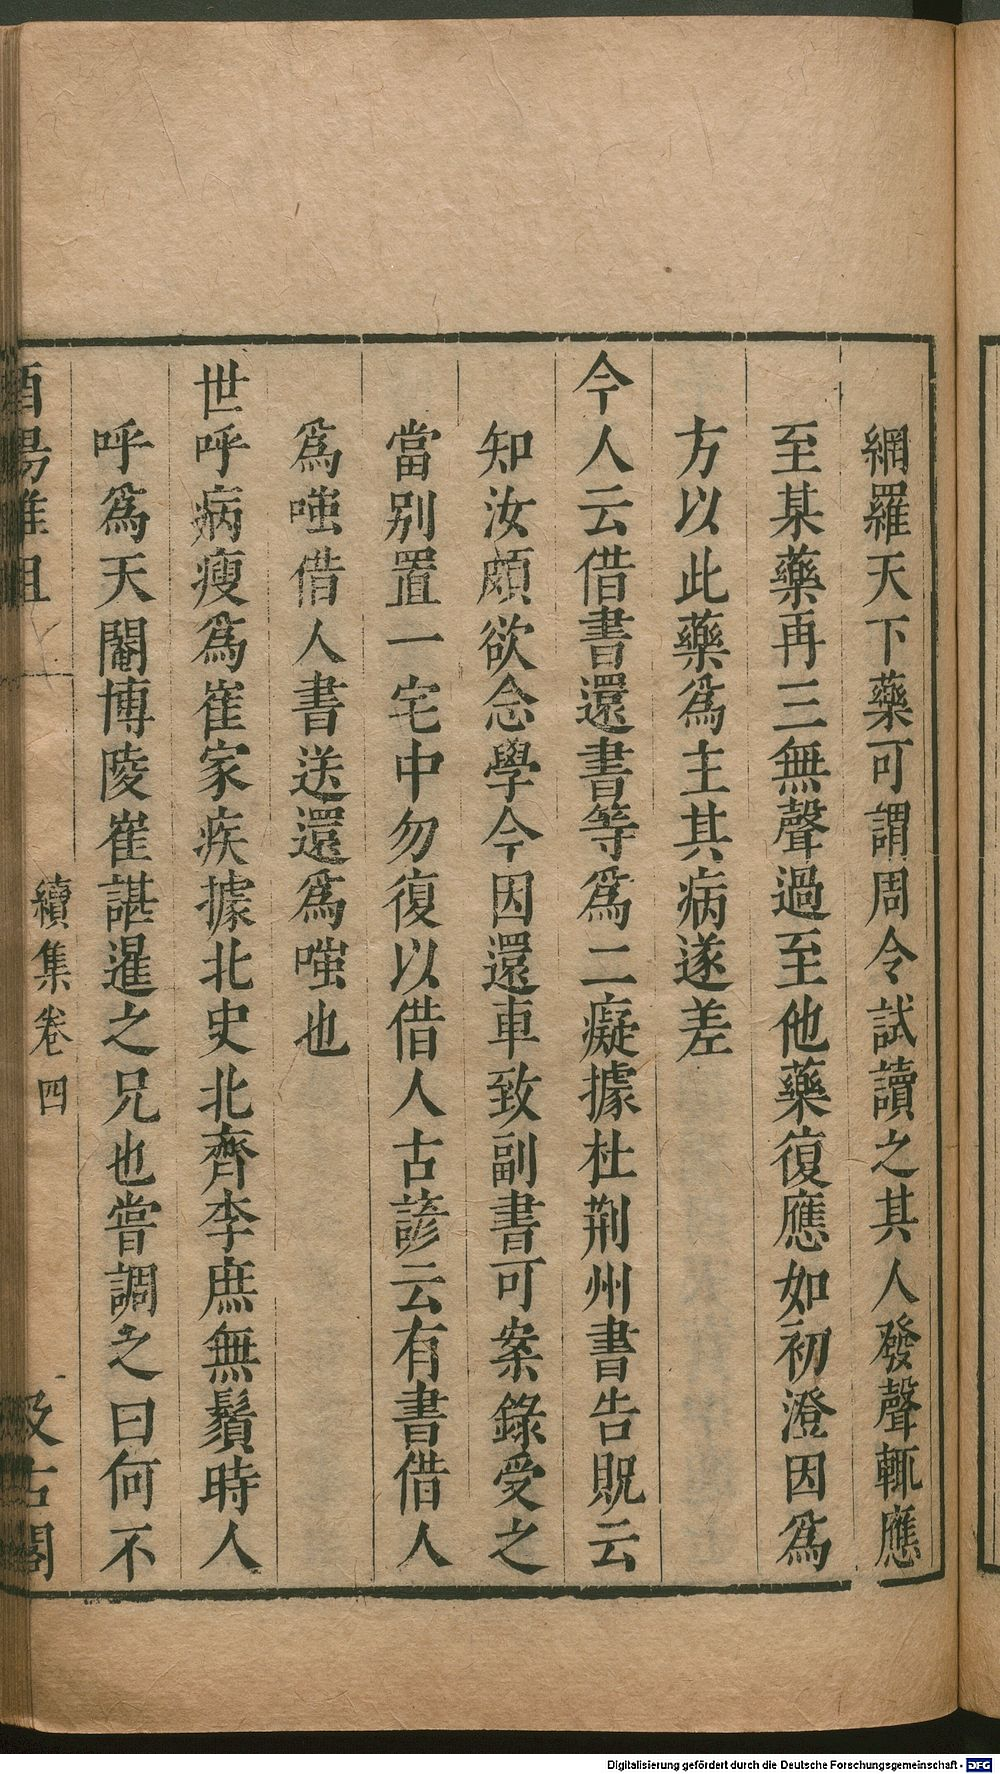 網羅天下藥可謂周令試讀之其人發聲輒應
至某藥再三無聲過至他藥復應如初澄因爲
方以此藥爲主其病遂差
今人云借書還書等爲二癡據杜荆州書告貺云
知汝頗欲念學今因還車致副書可案錄受之
當别置一宅中勿復以借人古諺云有書借人
爲嗤借人書送還爲嗤也
世呼病瘦爲崔家疾據北史北齊李庶無鬚時人
呼爲天閹博陵崔諶暹之兄也嘗調之曰何不
酉陽雜俎
續集卷四
汲古閣
Digitalisierung gefördert durch die Deutsche Forschungsgemeinschaft - DFG